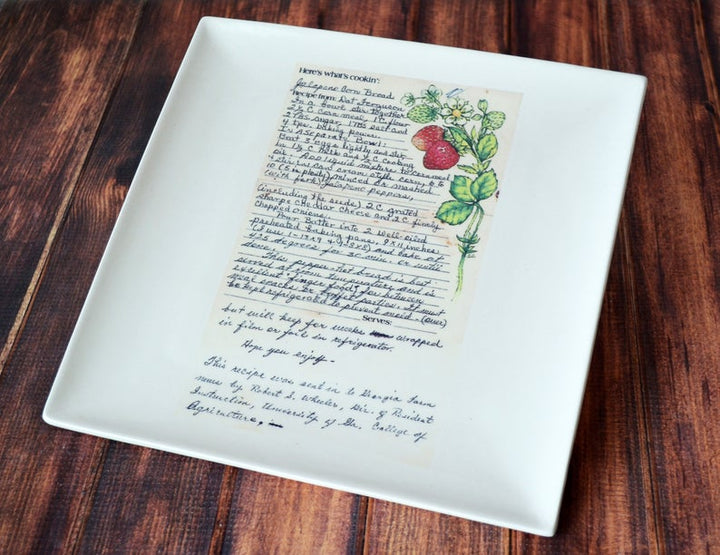 Here's what's cookin':
Jalapeno Corn Bread
Recipe from: Dot Ferguson
In a bowl stir together
2½ C. corn meal, 1 C. flour
2 TBs sugar, 1 TBs salt and
4 tsp. baking powder.
In A Separate Bowl:
Beat 3 eggs lightly and stir
in 1½ C milk and ½ C cooking
oil. Add liquid mixture to cornmeal
stir in can cream style corn, 6 to
10 (to ) minced or mashed
(with fork) Jalapeno peppers,
(including the seeds) 2 C. grated
sharp cheddar cheese and 2 C. finely
chopped onions.
Pour Batter into 2 well-oiled
preheated baking pans, 9 x 11 inches
(I use 1-13x9 & 1-8x8) and bake at
425 degrees for 30 min. or until
done.
This pepper-hot bread is best
served at room temperature and is
excellent "finger food" for between
meal snacks or buffet parties. It must
be kept refrigerated to prevent mold. (over)
Serves:
but will keep for weeks wrapped
in film or foil in refrigerator.
Hope you enjoy-
This recipe was sent in to Georgia Farm
news by Robert S. Wheeler, Dir. of Resident
Instruction, University of Ga. College of
Agriculture,